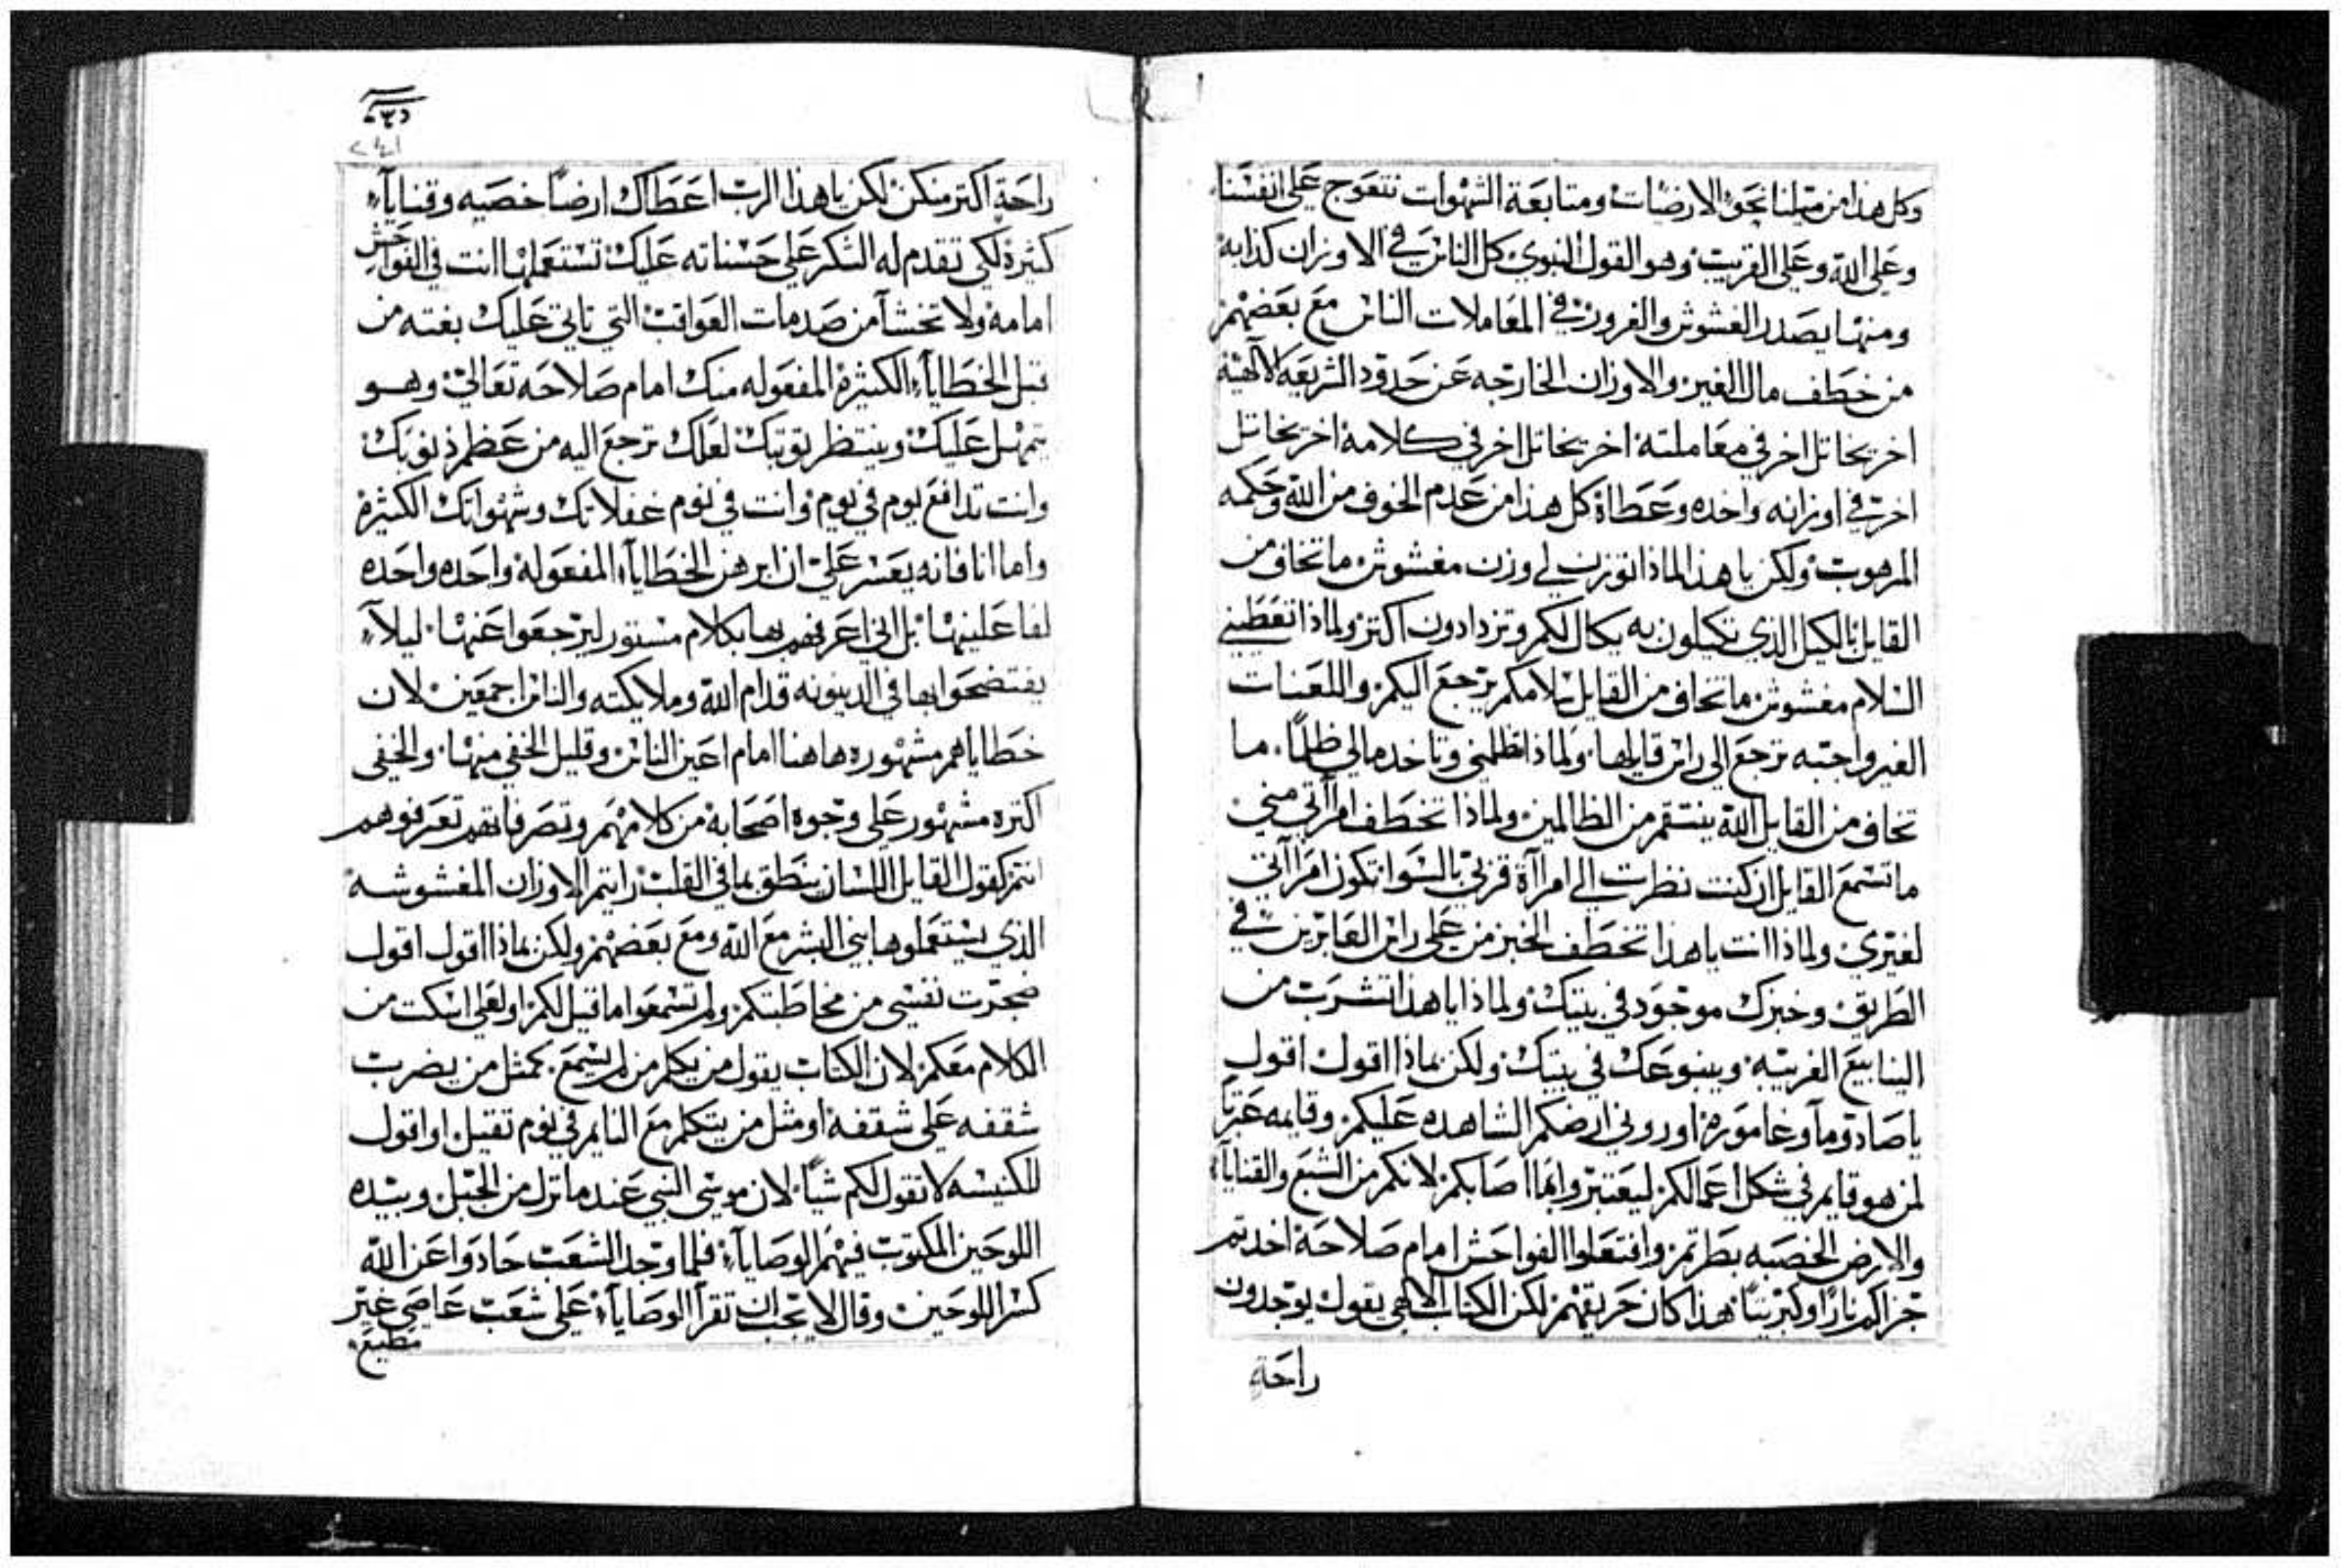 وكل هذا من ميلنا نحو الارضيات ومتابعة الشهوات نتعوج على انفسنا
وعلى الله وعلى القريب وهو القول النبوي كل الناس في الاوزان كذابه
ومنها يصدر الغشوش والغرور في المعاملات الناس مع بعضهم
من خطف مال الغير والاوزان الخارجه عن حدود الشريعه الالهية
اخر يخاتل اخر في معاملته اخر يخاتل اخر في كلامه اخر يخاتل
اخر في اوزانه واخده وعطاة كل هذا من عدم الخوف من الله وحكمه
المرهوب ولكن يا هذا لماذا توزن لي وزن مغشوش ما تخاف من
القايل بالكيل الذي تكيلون به يكال لكم وتزدادون اكتر ولماذا تعطيني
السلام مغشوش ما تخاف من القايل سلامكم يرجع اليكم واللعنات
الغير واجبه ترجع الى راس قايلها ولماذا تظلمني وتاخد مالي ظلمًا ما
تخاف من القايل الله ينتقم من الظالمين ولماذا تخطف امرأتي مني
ما تسمع القايل ان كنت نظرت الى امراآة قريبي بالسوا تكون امراآتي
لغيري ولماذا انت يا هذا تخطف الخبز من على راس العابرين في
الطريق وخبزك موجود في بيتك ولماذا يا هذا تشرب من
الينابيع الغريبه وينبوعك في بيتك ولكن بماذا اقول اقول
يا صادوما وغاموره اوروني ارضكم الشاهده عليكم وقايمه عبرتا
لمن هو قايم في شكل اعمالكم ليعتبر وانما اصابكم لانكم من الشبع والقناياء
والارض الخصبه بطرتم وافتعلوا الفواحش امام صلاحة اخدتم
جزاكم نارًا وكبريتًا هذا كان حريقهم لكن الكتاب الالهي يقول يوجدون
راحة
راحة اكتر منكن لكن يا هذا الرب اعطاك ارضًا خصبه وقناياء
كثيرة لكي تقدم له الشكر على حسناته عليك تستعملها انت في الفواحش
امامه ولا تخشآ من صدمات العواقب التي تاتي عليك بغته من
قبل الخطاياء الكثيرة المفعوله منك امام صلاحه تعالى وهو
يتمهل عليك وينتظر توبتك لعلك ترجع اليه من عظم ذنوبك
وانت تدافع يوم في يوم وانت في نوم غفلاتك وشهواتك الكثيرة
واما انا فانه يعسر علي ان ابرهن الخطاياء المفعوله واحده واحده
لفاعلينها بل اني اعرفهم بها بكلام مستور ليرجعوا عنها ليلاء
يفتضحوا بها في الدينونه قدام الله وملايكته والناس اجمعين لان
خطاياهم مشهوره هاهنا امام اعين الناس وقليل الخفي منها والخفي
اكتره مشهور على وجوه اصحابه من كلامهم وتصرفاتهم تعرفوهم
انتم كقول القايل اللسان ينطق بما في القلب رايتم الاوزان المغشوشه
الذي يستعملوها بني البشر مع الله ومع بعضهم ولكن بماذا اقول اقول
ضجرت نفسي من مخاطبتكم ولم تسمعوا ما قيل لكم اولعلي اسكت من
الكلام معكم لان الكتاب يقول من يكلم من لم يسمع كمثل من يضرب
شقفه على شقفة او مثل من يتكلم مع النايم في نوم تقيل او اقول
للكنيسه لا تقول لكم شيًا لان موسى النبي عندما نزل من الجبل وبيده
اللوحين المكتوب فيهم الوصاياء فلما وجد الشعب حادوا عن الله
كسر اللوحين وقال لا يجب ان تقرأ الوصاياء على شعب عاصي غير
مطيع